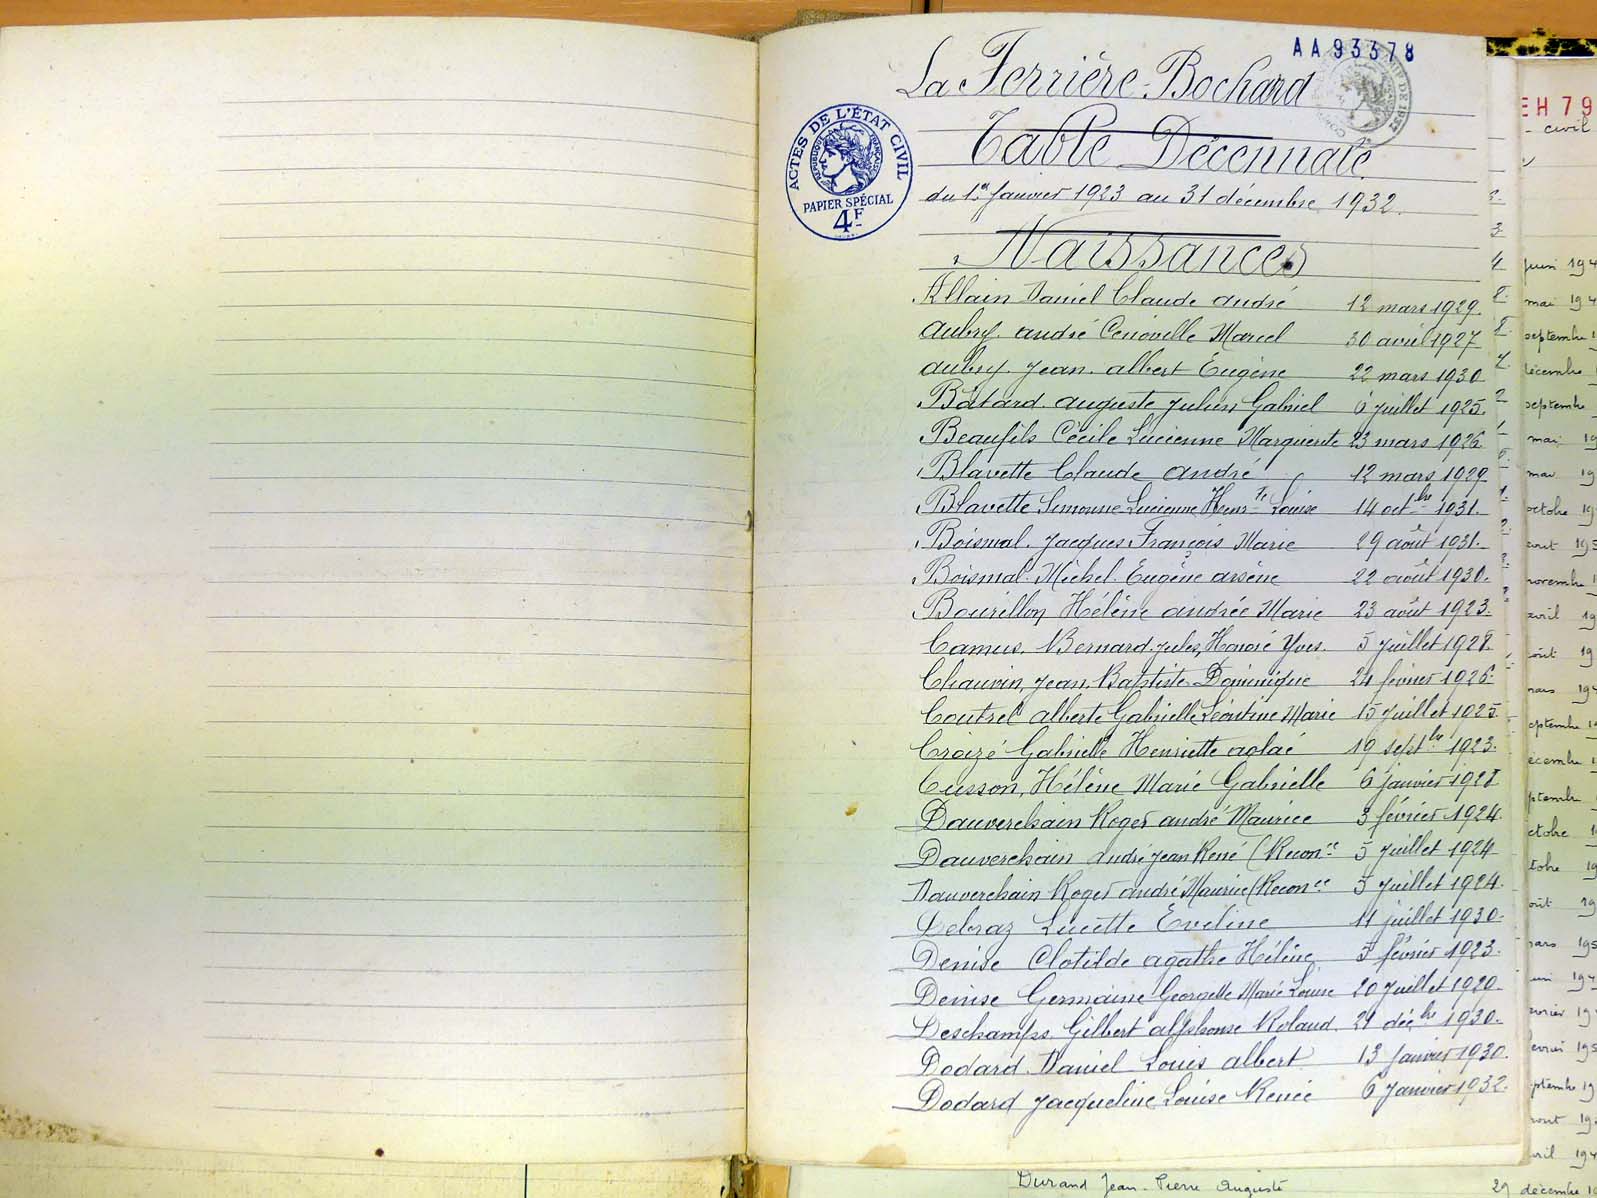 AA93378
La Ferrière-Bochard
ACTES DE L'ÉTAT CIVIL
RÉPUBLIQUE FRANÇAISE
PAPIER SPÉCIAL
4F
Table Décennale
du 1er Janvier 1923 au 31 décembre 1932.
Naissances
Allain Daniel Claude andré 12 mars 1929.
Aubry andré Marcel 30 avril 1927
Aubry Jean albert Eugène 22 mars 1930
Bâtard auguste Julien Gabriel 6 juillet 1925.
Beaufils Cécile Lucienne Marguerite 23 mars 1926
Blavette Claude André 12 mars 1929
Blavette Simonne Lucienne Henrte Louise 14 octbre 1931.
Boismal Jacques François Marie 29 août 1931.
Boismal Michel Eugène arsène 22 août 1930.
Bourillon Hélène andrée Marie 23 août 1923.
Camus, Bernard, Jules, Honoré Yves. 5 juillet 1928.
Chauvin, Jean, Baptiste Dominique 24 février 1926.
Coutrel alberte Gabrielle Léontine Marie 15 juillet 1925.
Croizé Gabrielle Henriette aglaé 19 septbre 1923.
Cusson, Hélène Marie Gabrielle 6 janvier 1928
Dauverchain Roger andré Maurice 3 février 1924.
Dauverchain André Jean René (Reconce 5 juillet 1924
Dauverchain Roger andré Maurice (Reconce 5 juillet 1924.
Lucette Eveline 11 juillet 1930.
Denise Clotilde agathe Hélène 5 février 1923.
Denise Germaine Georgette Marie Louise 20 juillet 1920.
Deschamps Gilbert alphonse Roland. 21 décbre 1930.
Dodard Daniel Louis albert 13 janvier 1930.
Dodard Jacqueline Louise Renée 6 janvier 1932.
EH 79
civil
juin 194
mai 194
septembre 1
décembre
septembre
mai 19
mai 19
octobre 19
août 195
novembre 1
avril 19
août 19
mars 194
Durand Jean-Pierre Auguste 29 décembre 19